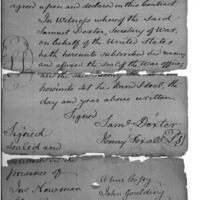 agreed upon and declared in this Contract
In Witness whereof the said
Samuel Dexter, Secretary of War,
on behalf of the United States
hath hereunto subscribed his name,
and affixed the Seal of the War office,
and the said Henry Foxall
hereunto set his hand & seal, the
day and year above written
Signed
Saml Dexter
Henry Foxall
Signed
sealed and
in the
presence of
Jno Newman
A true Copy
John Goulding